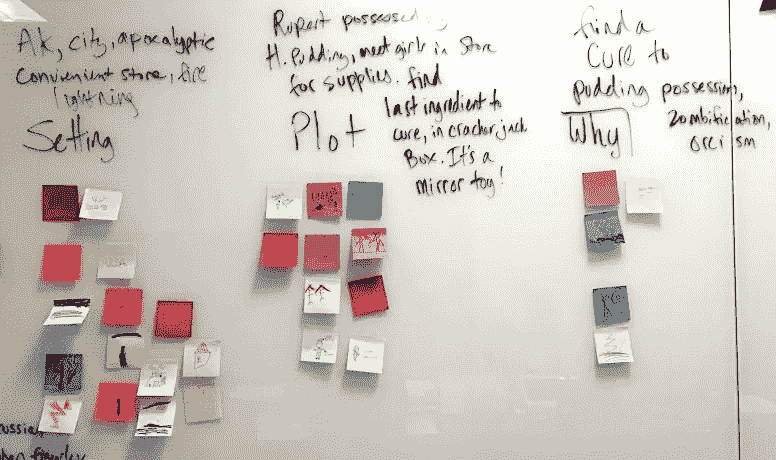 AK, city, apocalyptic
convenient store, fire
lightning
Setting
Rupert possessed
H. Pudding, meet girls in store
for supplies. find
last ingredient to
cure, in crackerjack
Box. It's a
mirror toy!
Plot
find a
cure to
pudding possession,
zombification,
orcism
Why